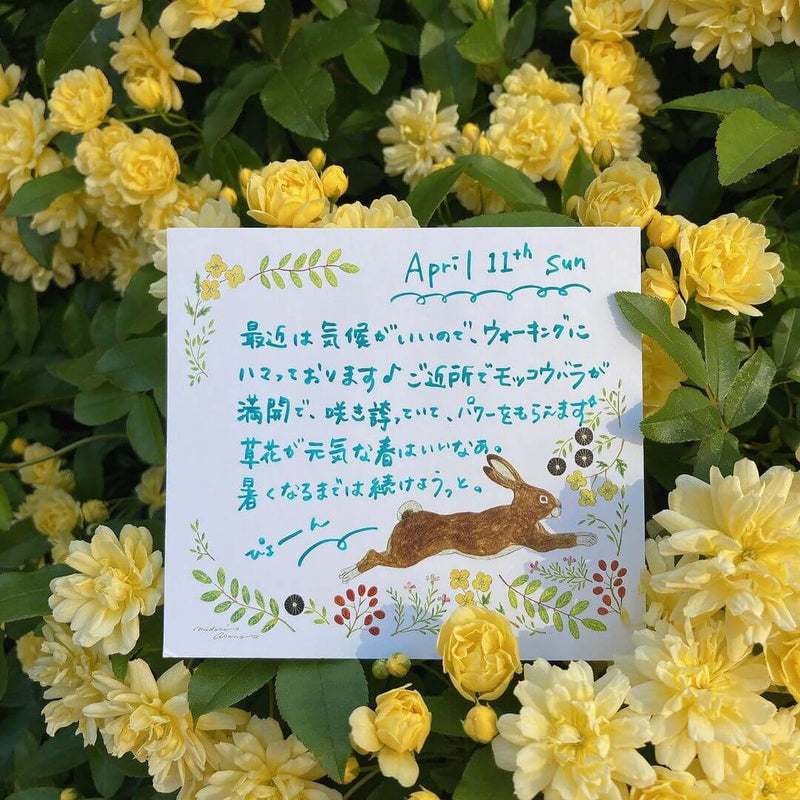 April 11th Sun
最近は気候がいいので、ウォーキングに
ハマっております♪ご近所でモッコウバラが
満開で、咲き誇っていて、パワーをもらえます
草花が元気な春はいいなぁ。
暑くなるまでは続けようっと。
ぴょーん